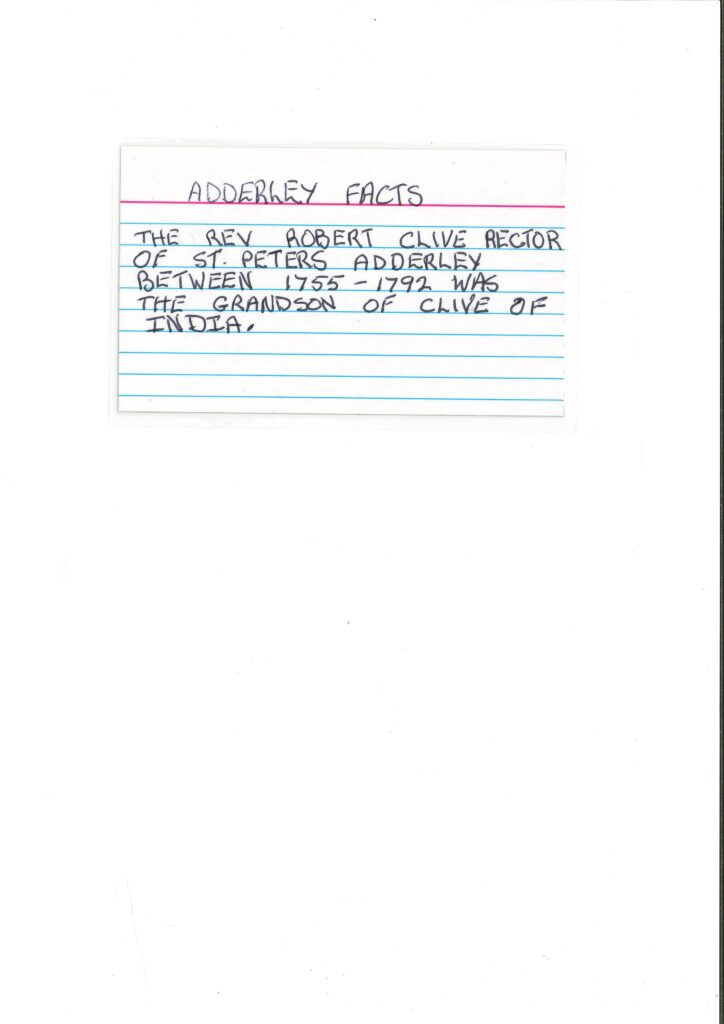 ADDERLEY FACTS
THE REV ROBERT CLIVE RECTOR
OF ST. PETERS ADDERLEY
BETWEEN 1755 - 1792 WAS
THE GRANDSON OF CLIVE OF
INDIA.